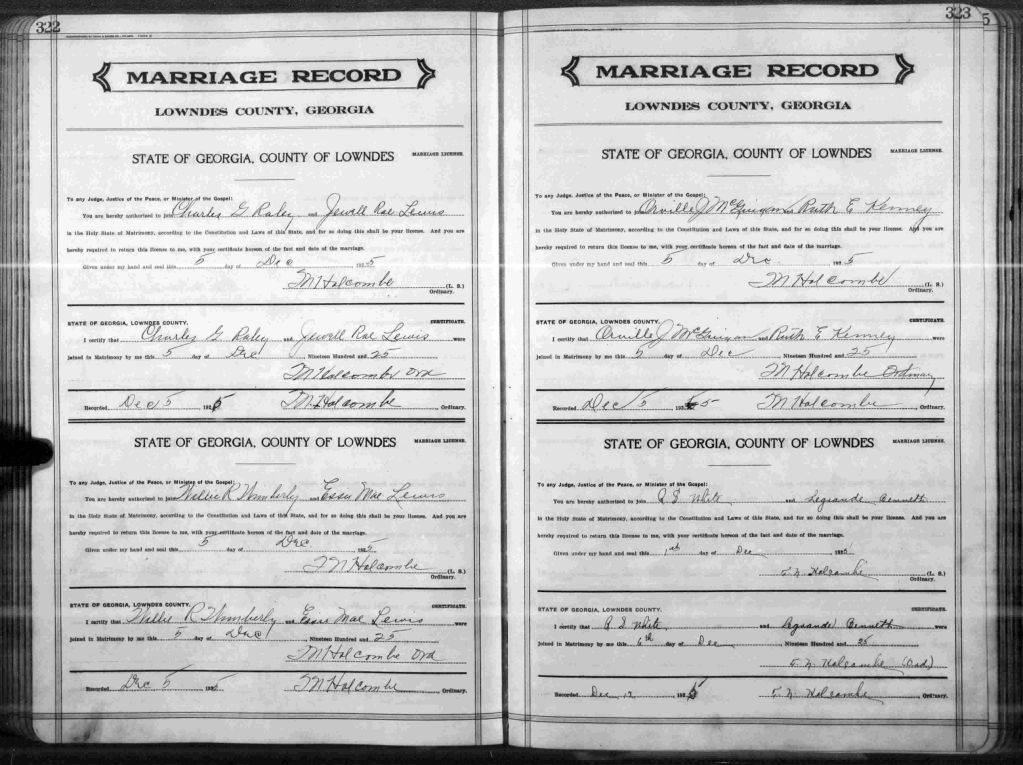 322
MARRIAGE RECORD
LOWNDES COUNTY, GEORGIA
STATE OF GEORGIA, COUNTY OF LOWNDES MARRIAGE LICENSE.
To any Judge, Justice of the Peace, or Minister of the Gospel:
You are hereby authorized to join Charles G Raley and Jewell Rae Lewis
in the Holy State of Matrimony, according to the Constitution and Laws of this State, and for so doing this shall be your license. And you are
hereby required to return this license to me, with your certificate hereon of the fact and date of the marriage.
Given under my hand and seal this 5 day of Dec 1925
T N Holcombe (L. S.)
Ordinary.
STATE OF GEORGIA, LOWNDES COUNTY. CERTIFICATE.
I certify that Charles G Raley and Jewell Rae Lewis were
joined in Matrimony by me this 5 day of Dec Nineteen Hundred and 25
T N Holcombe Ord
Recorded Dec 5 1925 T N Holcombe, Ordinary.
STATE OF GEORGIA, COUNTY OF LOWNDES MARRIAGE LICENSE.
To any Judge, Justice of the Peace, or Minister of the Gospel:
You are hereby authorized to join Willie R Wimberly and Essie Mae Lewis
in the Holy State of Matrimony, according to the Constitution and Laws of this State, and for so doing this shall be your license. And you are
hereby required to return this license to me, with your certificate hereon of the fact and date of the marriage.
Given under my hand and seal this 5 day of Dec 1925
T N Holcombe (L. S.)
Ordinary.
STATE OF GEORGIA, LOWNDES COUNTY. CERTIFICATE.
I certify that Willie R Wimberly and Essie Mae Lewis were
joined in Matrimony by me this 5 day of Dec, Nineteen Hundred and 25
T N Holcombe Ord
Recorded Dec 5 1925 T N Holcombe, Ordinary.
323
5
MARRIAGE RECORD
LOWNDES COUNTY, GEORGIA
STATE OF GEORGIA, COUNTY OF LOWNDES MARRIAGE LICENSE.
To any Judge, Justice of the Peace, or Minister of the Gospel:
You are hereby authorized to join Orville J McGuigan and Ruth E Kenney
in the Holy State of Matrimony, according to the Constitution and Laws of this State, and for so doing this shall be your license. And you are
hereby required to return this license to me, with your certificate hereon of the fact and date of the marriage.
Given under my hand and seal this 5 day of Dec. 1925
T N Holcombe (L. S.)
Ordinary.
STATE OF GEORGIA, LOWNDES COUNTY. CERTIFICATE.
I certify that Orville J McGuigan and Ruth E Kenney were
joined in Matrimony by me this 5 day of Dec, Nineteen Hundred and 25
T N Holcombe Ordinary
Recorded Dec 5 1925 T N Holcombe, Ordinary.
STATE OF GEORGIA, COUNTY OF LOWNDES MARRIAGE LICENSE.
To any Judge, Justice of the Peace, or Minister of the Gospel:
You are hereby authorized to join White and Legrande Bennett
in the Holy State of Matrimony, according to the Constitution and Laws of this State, and for so doing this shall be your license. And you are
hereby required to return this license to me, with your certificate hereon of the fact and date of the marriage.
Given under my hand and seal this 1st day of Dec, 1925
T. N. Holcombe (L. S.)
Ordinary.
STATE OF GEORGIA, LOWNDES COUNTY. CERTIFICATE.
I certify that White and Legrande Bennett were
joined in Matrimony by me this 6th day of Dec, Nineteen Hundred and 25
T. N. Holcombe (Ord.)
Recorded Dec 12, 1925 T. N. Holcombe, Ordinary.